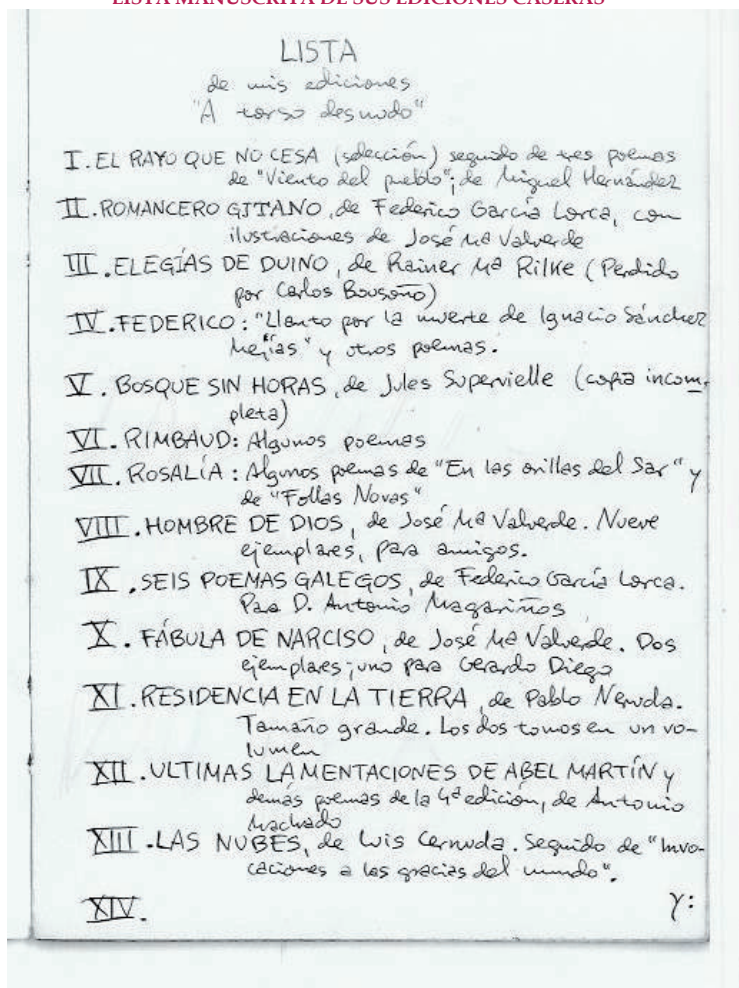 LISTA MANUSCRITA DE SUS EDICIONES CASERAS
LISTA
de mis ediciones
"A torso desnudo"
I. EL RAYO QUE NO CESA (selección) seguido de tres poemas
de "Viento del pueblo"; de Miguel Hernández
II. ROMANCERO GITANO, de Federico García Lorca, con
ilustraciones de José Mª Valverde
III. ELEGÍAS DE DUINO, de Rainer Mª Rilke (Perdido
por Carlos Bousoño)
IV. FEDERICO: "Llanto por la muerte de Ignacio Sánchez
Mejías" y otros poemas.
V. BOSQUE SIN HORAS, de Jules Supervielle (copia incom-
pleta)
VI. RIMBAUD: Algunos poemas
VII. ROSALÍA: Algunos poemas de "En las orillas del Sar" y
de "Follas Novas"
VIII. HOMBRE DE DIOS, de José Mª Valverde. Nueve
ejemplares, para amigos.
IX. SEIS POEMAS GALEGOS, de Federico García Lorca.
Para D. Antonio Magariños
X. FÁBULA DE NARCISO, de José Mª Valverde. Dos
ejemplares; uno para Gerardo Diego
XI. RESIDENCIA EN LA TIERRA, de Pablo Neruda.
Tamaño grande. Los dos tomos en un vo-
lumen
XII. ULTIMAS LAMENTACIONES DE ABEL MARTÍN y
demás poemas de la 4ª edición, de Antonio
Machado
XIII. LAS NUBES, de Luis Cernuda. Seguido de "Invo-
caciones a las gracias del mundo".
XIV. y: